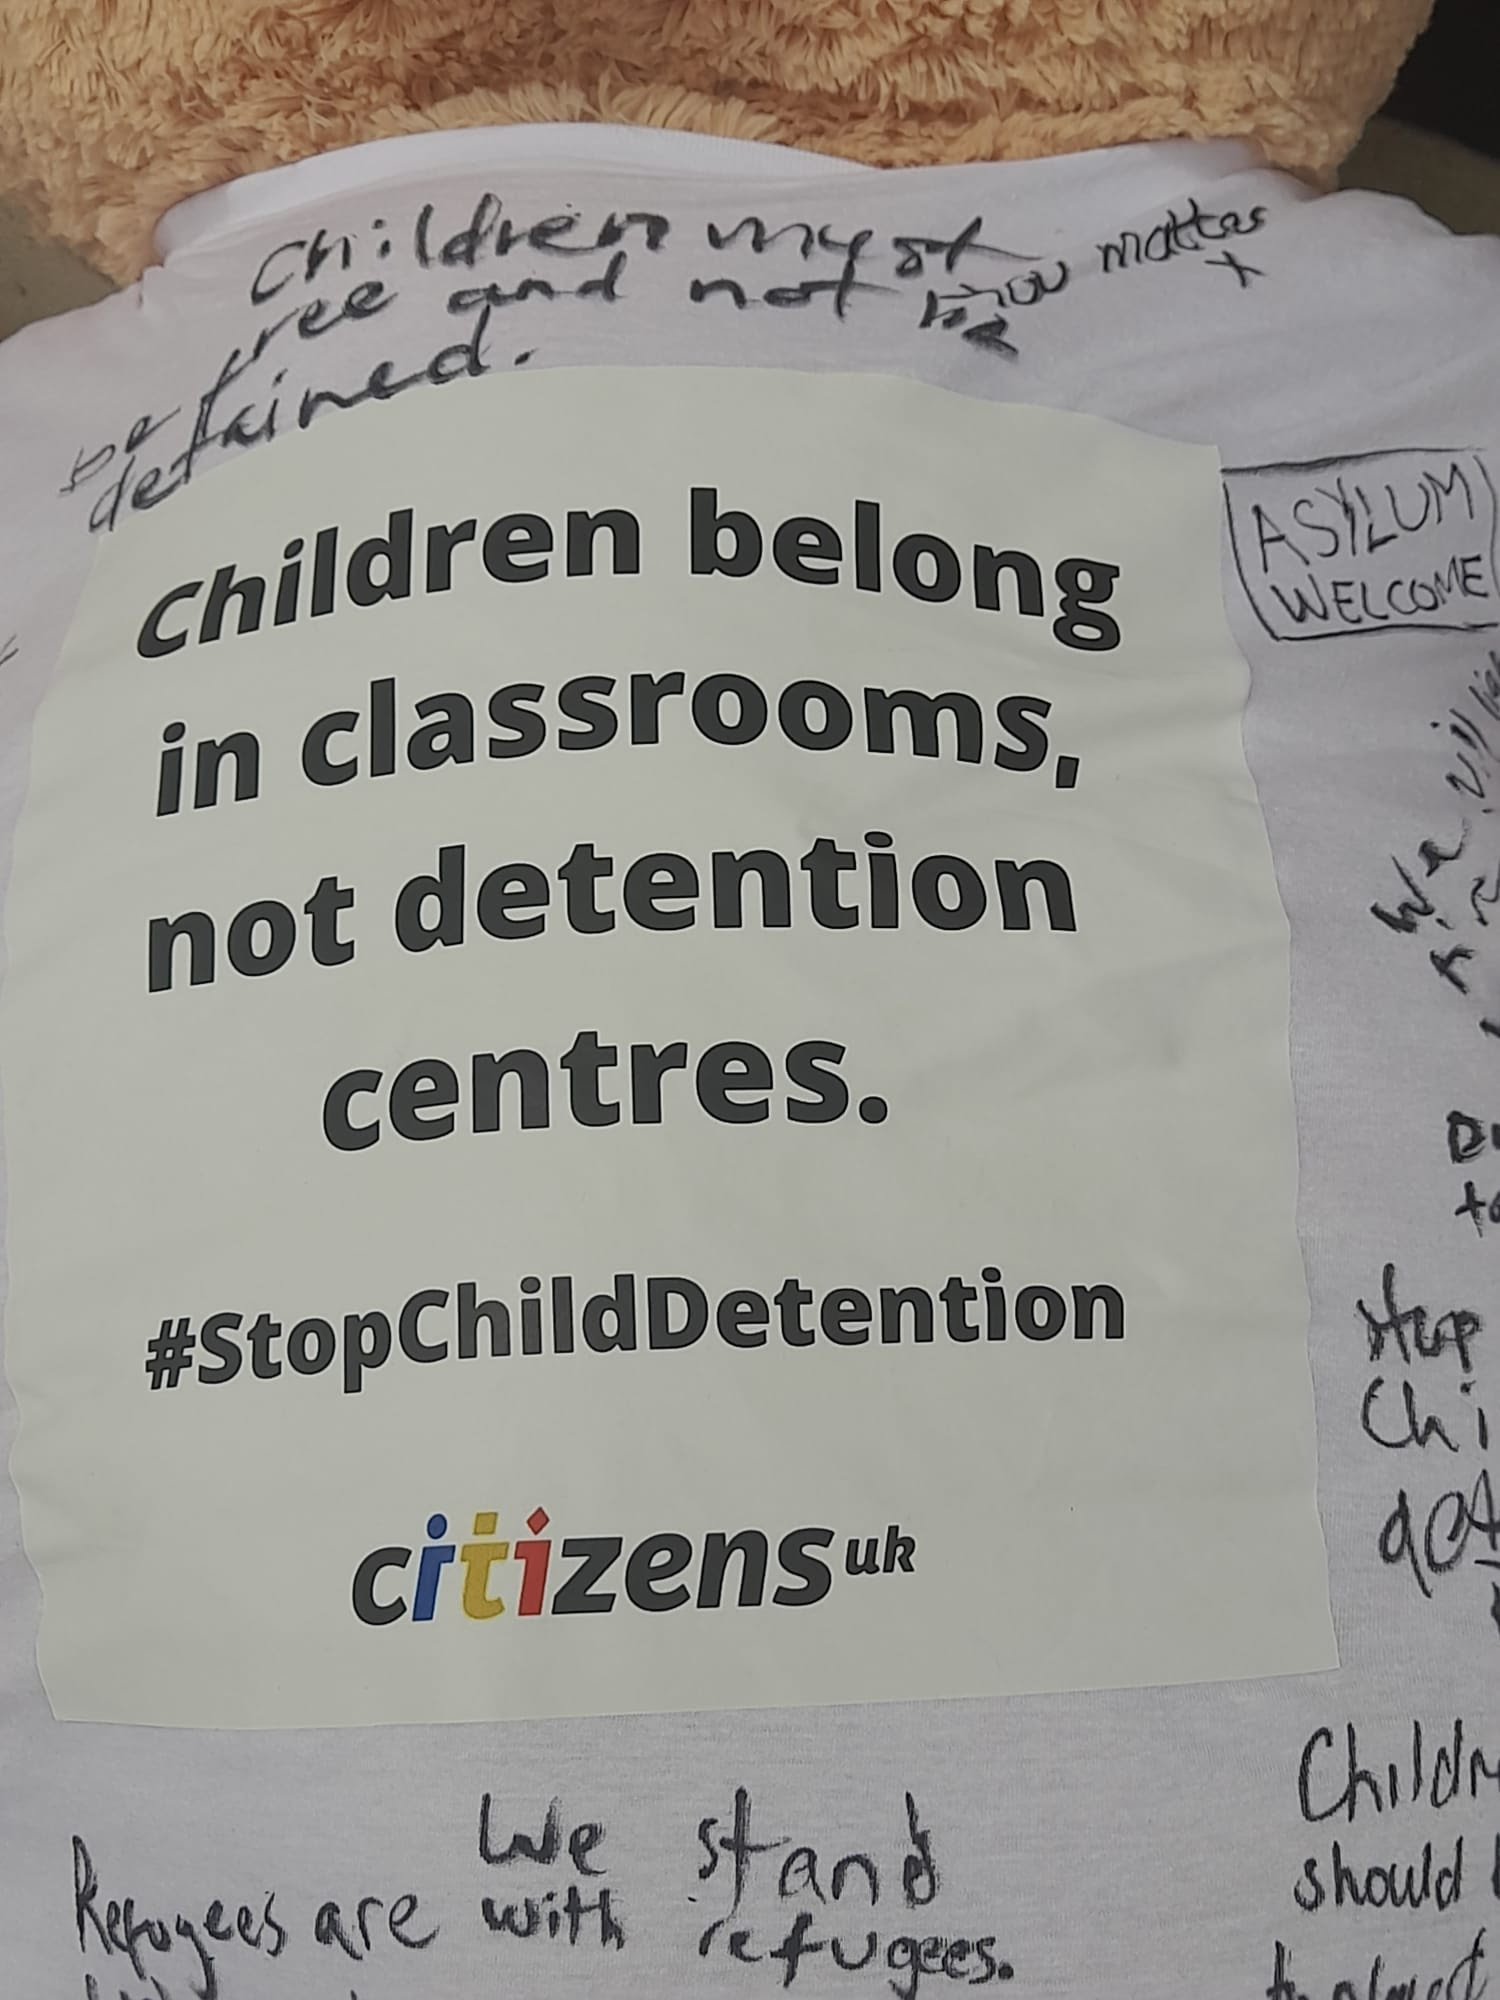 Children must
be free and not
detained.
you matter
x
ASYLUM
WELCOME
Children belong
in classrooms,
not detention
centres.
#StopChildDetention
citizens uk
We
Stop
Chi
We stand
with refugees.
Refugees are
Childr
should